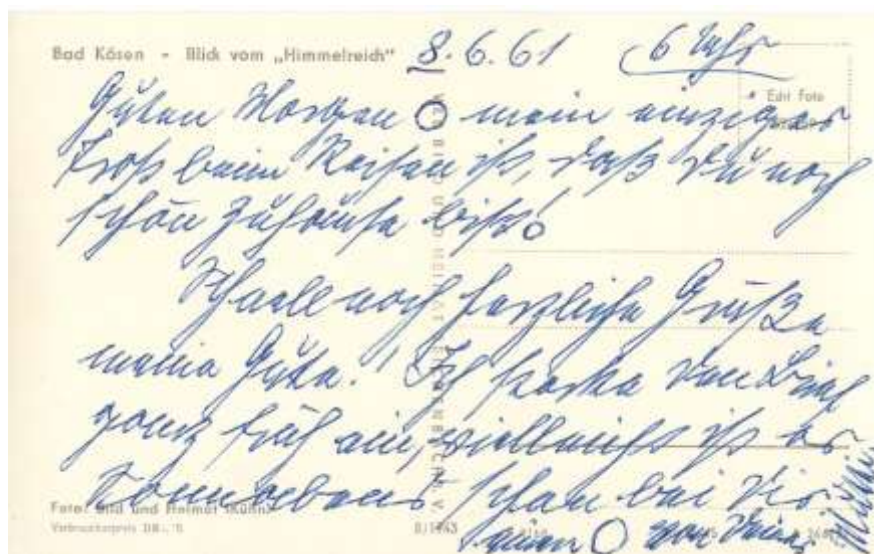 Bad Kösen - Blick vom „Himmelreich"
8.6.61 6 Uhr
Guten Morgen mein einziger
Trost beim Reisen ist, daß Du noch
schön zuhause bist!
Schnell noch herzliche Grüße
meine Gute! Ich stecke den Brief
ganz früh ein, vielleicht ist er
Sonnabend schon bei Dir.
von Deinem
Foto: Bild und Heimat (Kühn)
Verbraucherpreis DM -,15